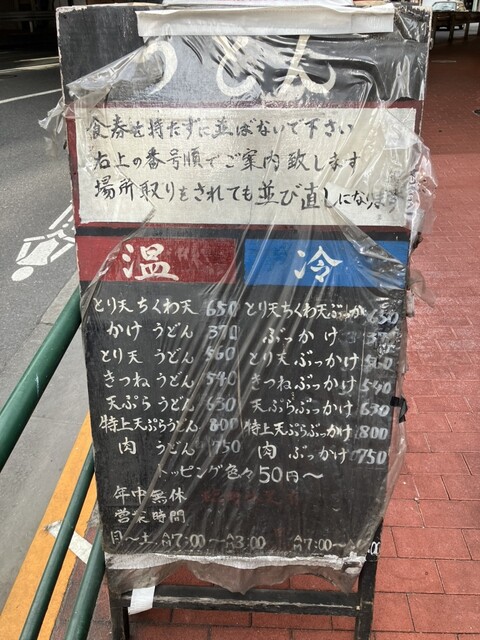 うどん
食券を持たずに並ばないで下さい
右上の番号順でご案内致します
場所取りをされても並び直しになります
温 冷
とり天ちくわ天 650 とり天ちくわ天ぶっかけ 650
かけ うどん 370 ぶっかけ 370
とり天 うどん 560 とり天 ぶっかけ 560
きつね うどん 540 きつね ぶっかけ 540
天ぷら うどん 630 天ぷら ぶっかけ 630
特上天ぷらうどん 800 特上天ぷらぶっかけ 800
肉 うどん 750 肉 ぶっかけ 750
トッピング色々 50円〜
年中無休
営業時間
月〜土 AM7:00〜AM3:00 AM7:00〜